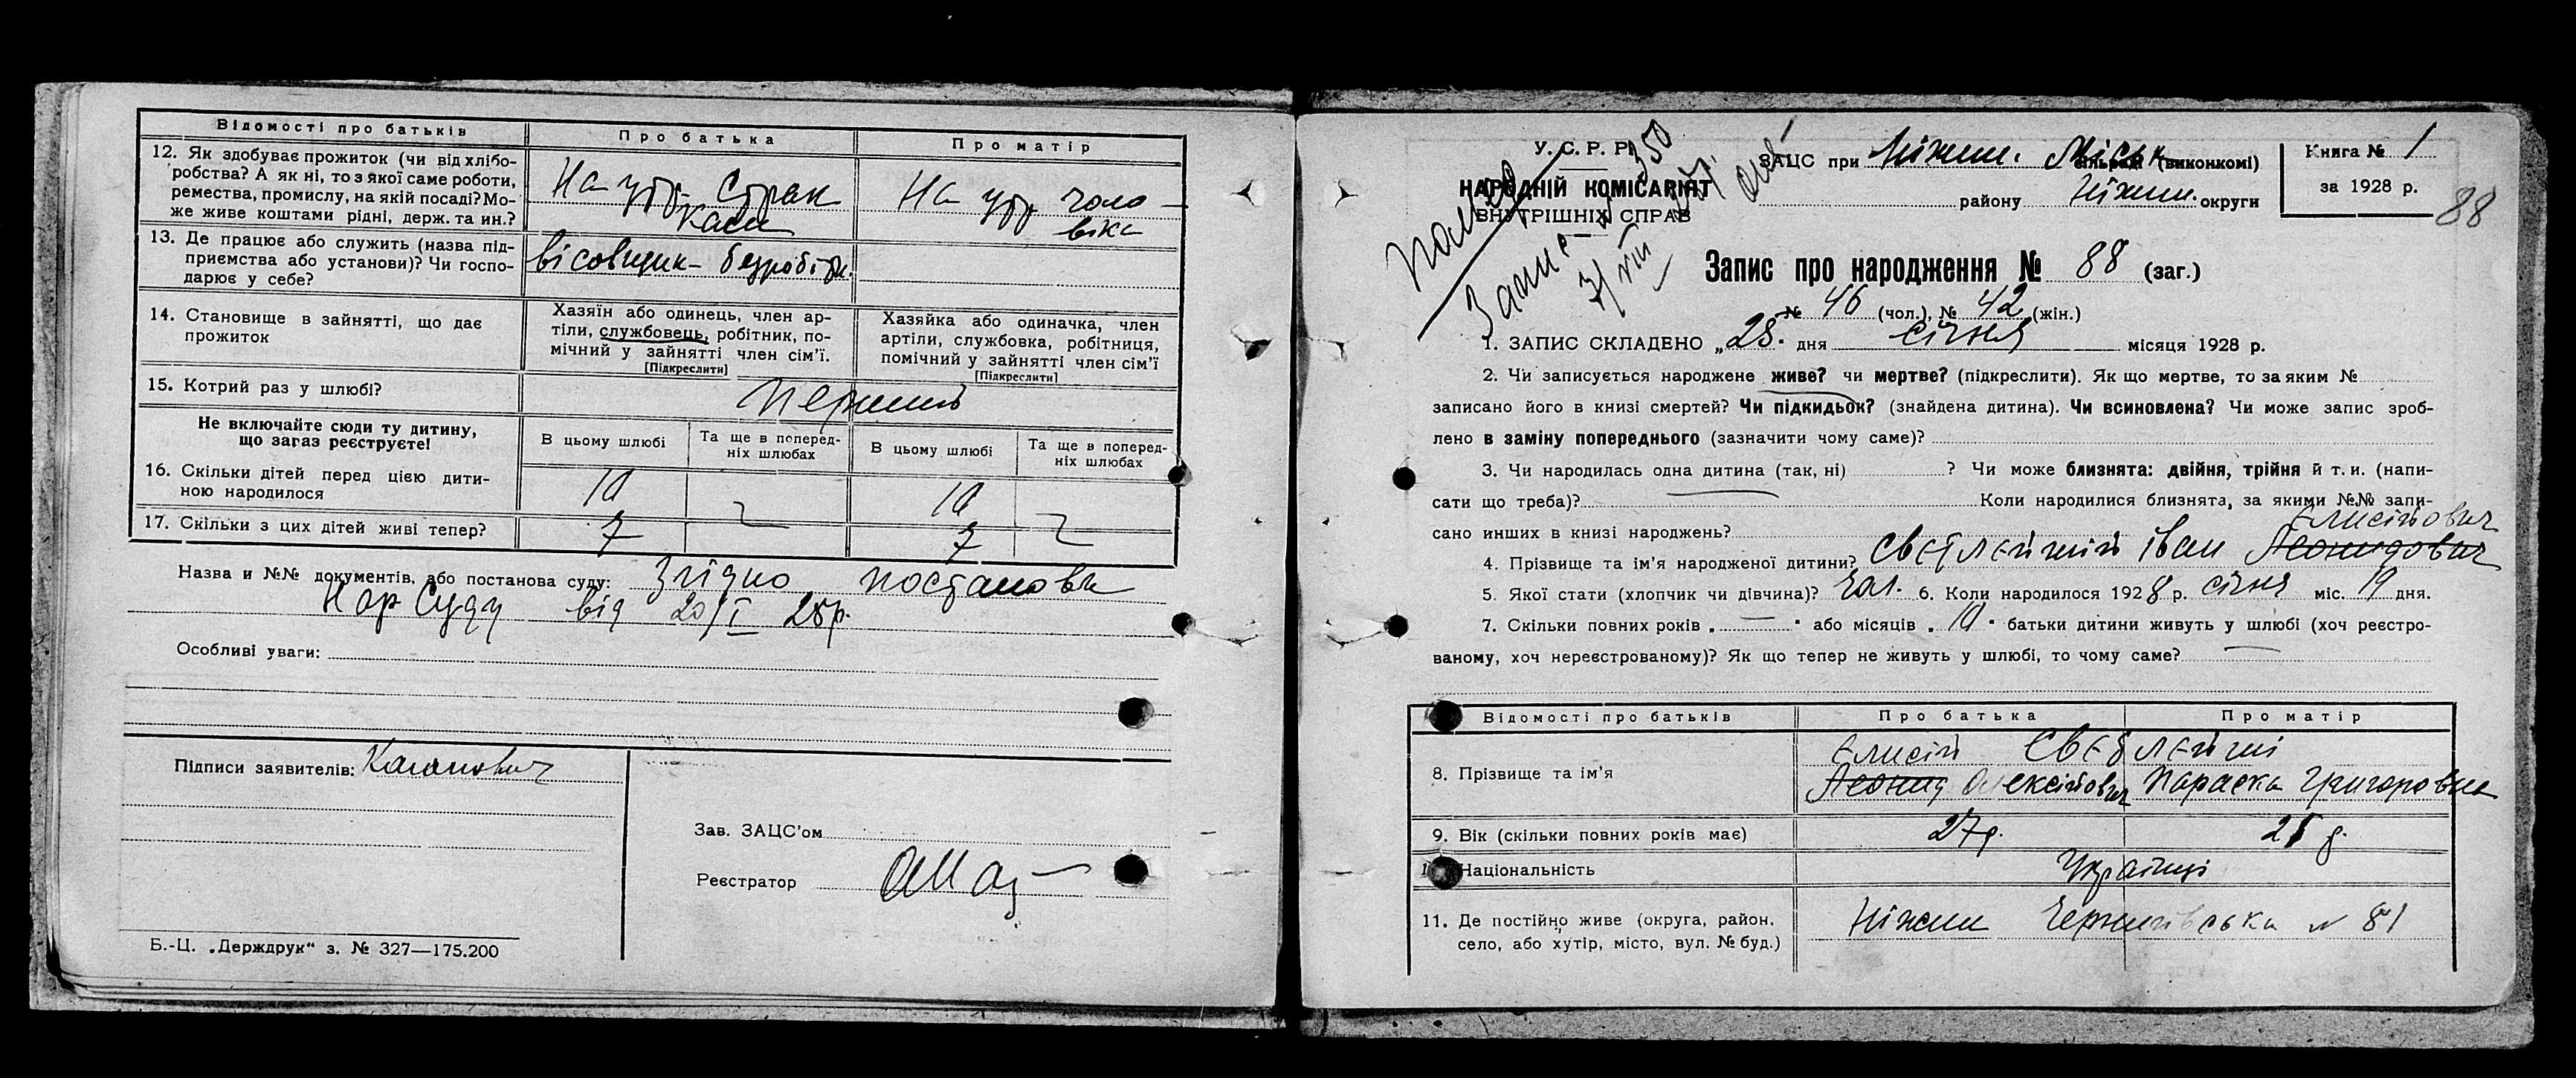 Відомості про батьків
Про батька
Про матір
12. Як здобуває прожиток (чи від хлібо-
робства? А як ні, то з якої саме роботи,
ремества, промислу, на якій посаді? Мо-
же живе коштами рідні, держ. та ин.?
На утр. Страх
каси
На утр чоло-
віка
13. Де працює або служить (назва під-
приємства або установи)? Чи госпо-
дарює у себе?
вісовщик - безробітн.
14. Становище в зайнятті, що дає
прожиток
Хазяїн або одинець, член ар-
тіли, службовець, робітник, по-
мічний у зайнятті член сім'ї.
[Підкреслити]
Хазяйка або одиначка, член
артіли, службовка, робітниця,
помічний у зайнятті член сім'ї
[Підкреслити]
15. Котрий раз у шлюбі?
Перший
Не включайте сюди ту дитину,
що зараз реєструєте!
В цьому шлюбі
Та ще в поперед-
ніх шлюбах
В цьому шлюбі
Та ще в поперед-
ніх шлюбах
16. Скільки дітей перед цією дити-
ною народилося
17. Скільки з цих дітей живі тепер?
Назва и №№ документів, або постанова суду: Згідно постанови
Нар Суду від 20/I 28р.
Особливі уваги:
Підписи заявителів: Каганович
Зав. ЗАЦС'ом
Реєстратор
Б.-Ц. „Держдрук“ з. № 327—175.200
У. С. Р. Р.
НАРОДНІЙ КОМІСАРІЯТ
ВНУТРІШНІХ СПРАВ
Запис 350
7/VIII
ЗАЦС при Ніжин. Міськ (виконкомі)
району Ніжин. округи
Книга № 1
за 1928 р.
88
Запис про народження № 88 (заг.)
№ 46 (чол.), № 42 (жін.)
1. ЗАПИС СКЛАДЕНО „28. дня січня місяця 1928 р.
2. Чи записується народжене живе? чи мертве? (підкреслити). Як що мертве, то за яким №
записано його в книзі смертей? Чи підкидьок? (знайдена дитина). Чи всиновлена? Чи може запис зроб-
лено в заміну попереднього (зазначити чому саме)?
3. Чи народилась одна дитина (так, ні) ? Чи може близнята: двійня, трійня й т. и. (напи-
сати що треба)? Коли народилися близнята, за якими №№ запи-
сано инших в книзі народжень?
Єлисійович
4. Прізвище та ім'я народженої дитини? Свєтлєйший Іван Леонидович
5. Якої стати (хлопчик чи дівчина)? Чол. 6. Коли народилося 1928 р. січня міс. 19 дня.
7. Скільки повних років „ — “ або місяців „ 10 “ батьки дитини живуть у шлюбі (хоч реєстро-
ваному, хоч нереєстрованому)? Як що тепер не живуть у шлюбі, то чому саме? —
Відомості про батьків
Про батька
Про матір
8. Прізвище та ім'я
Єлисій Свєтлєйші
Леонид Олексійович Параска Григоровна
9. Вік (скільки повних років має)
27р.
Національність
Українці
11. Де постійно живе (округа, район,
село, або хутір, місто, вул. № буд.)
Ніжин Чернигівська № 81